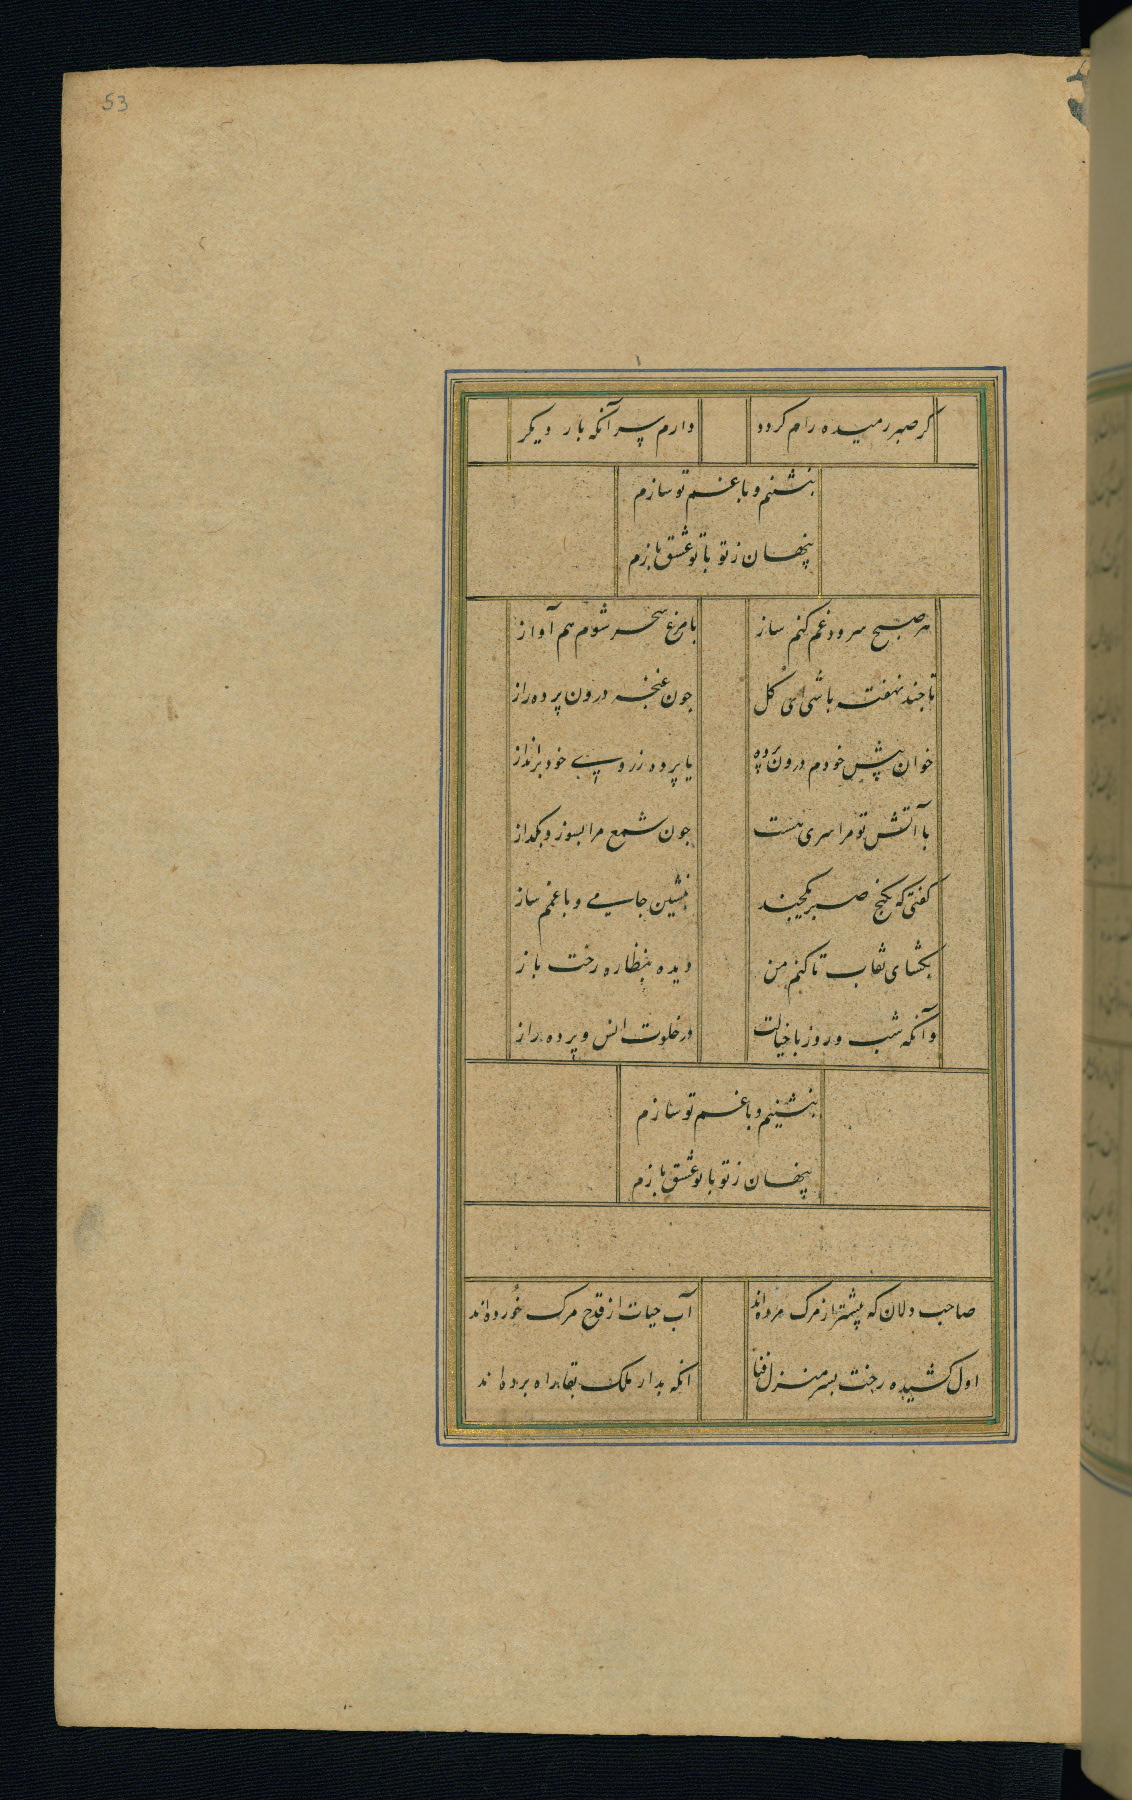 53
کر صبر رمیده رام کردد دارم سر آنکه بار دیکر
بنشینم و با غم تو سازم
پنهان ز تو با تو عشق بازم
هر صبح سرود غم کنم ساز با مرغ سحر شوم هم آواز
تا چند نهفته باشی ای کل چون غنچه درون پرده راز
خوان پیش خودم درون پرده یا پرده ز روی خود برانداز
با آتش تو مرا سری هست چون شمع مرا بسوز و بکداز
کفتی که بکنج صبر یکچند بنشین جامی و با غمم ساز
بکشای نقاب تا کنم من دیده بنظاره رخت باز
وآنکه شب و روز با خیالت در خلوت انس و پرده راز
بنشینم و با غم تو سازم
پنهان ز تو با تو عشق بازم
صاحب دلان که پیشتر از مرک مرده‌اند آب حیات از قدح مرک خورده‌اند
اول کشیده رخت بسر منزل فنا انکه بدار ملک بقا راه برده‌اند